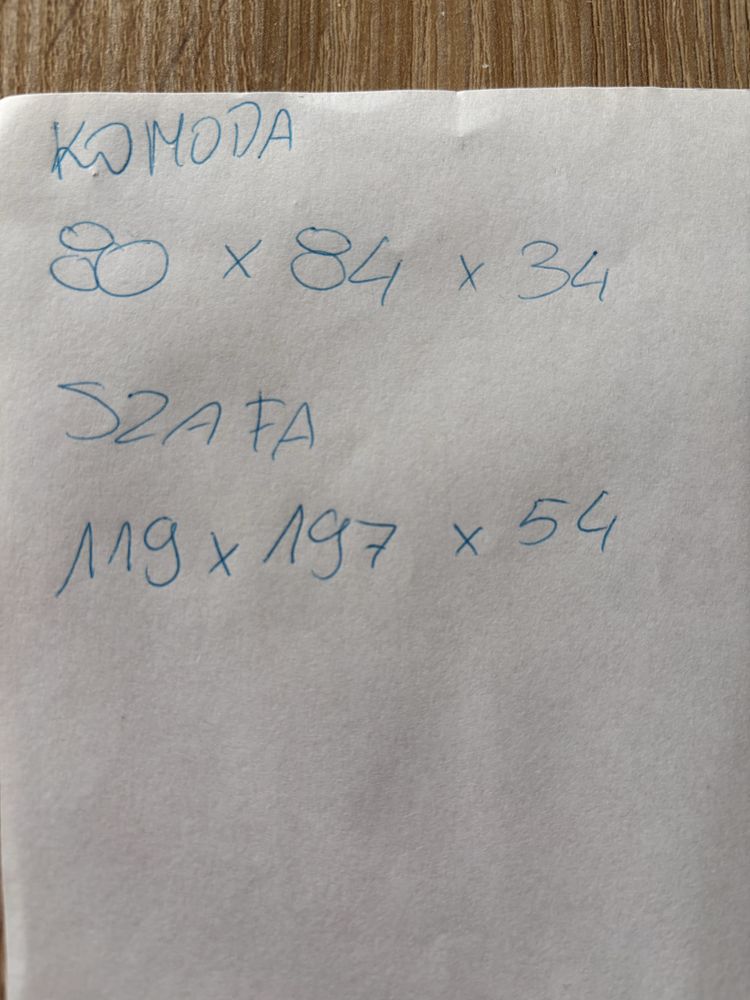 KOMODA
80 x 84 x 34
SZAFA
119 x 197 x 54